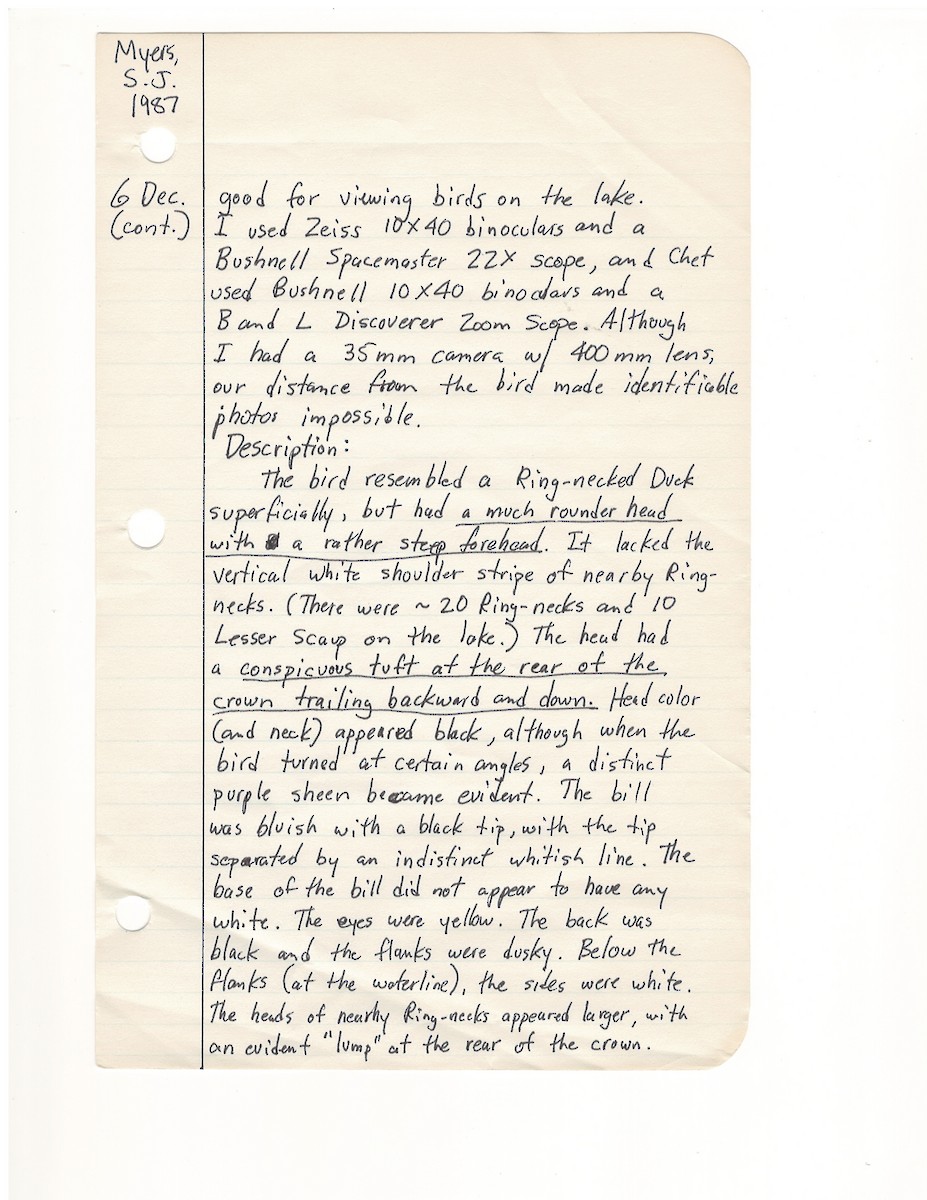 Myers,
S.J.
1987
6 Dec.
(cont.)
good for viewing birds on the lake.
I used Zeiss 10X40 binoculars and a
Bushnell Spacemaster 22X scope, and Chet
used Bushnell 10X40 binoculars and a
B and L Discoverer Zoom Scope. Although
I had a 35mm camera w/ 400mm lens,
our distance from the bird made identifiable
photos impossible.
Description:
The bird resembled a Ring-necked Duck
superficially, but had a much rounder head
with a rather steep forehead. It lacked the
vertical white shoulder stripe of nearby Ring-
necks. (There were ~ 20 Ring-necks and 10
Lesser Scaup on the lake.) The head had
a conspicuous tuft at the rear of the
crown trailing backward and down. Head color
(and neck) appeared black, although when the
bird turned at certain angles, a distinct
purple sheen became evident. The bill
was bluish with a black tip, with the tip
separated by an indistinct whitish line. The
base of the bill did not appear to have any
white. The eyes were yellow. The back was
black and the flanks were dusky. Below the
flanks (at the waterline), the sides were white.
The heads of nearby Ring-necks appeared larger, with
an evident "lump" at the rear of the crown.